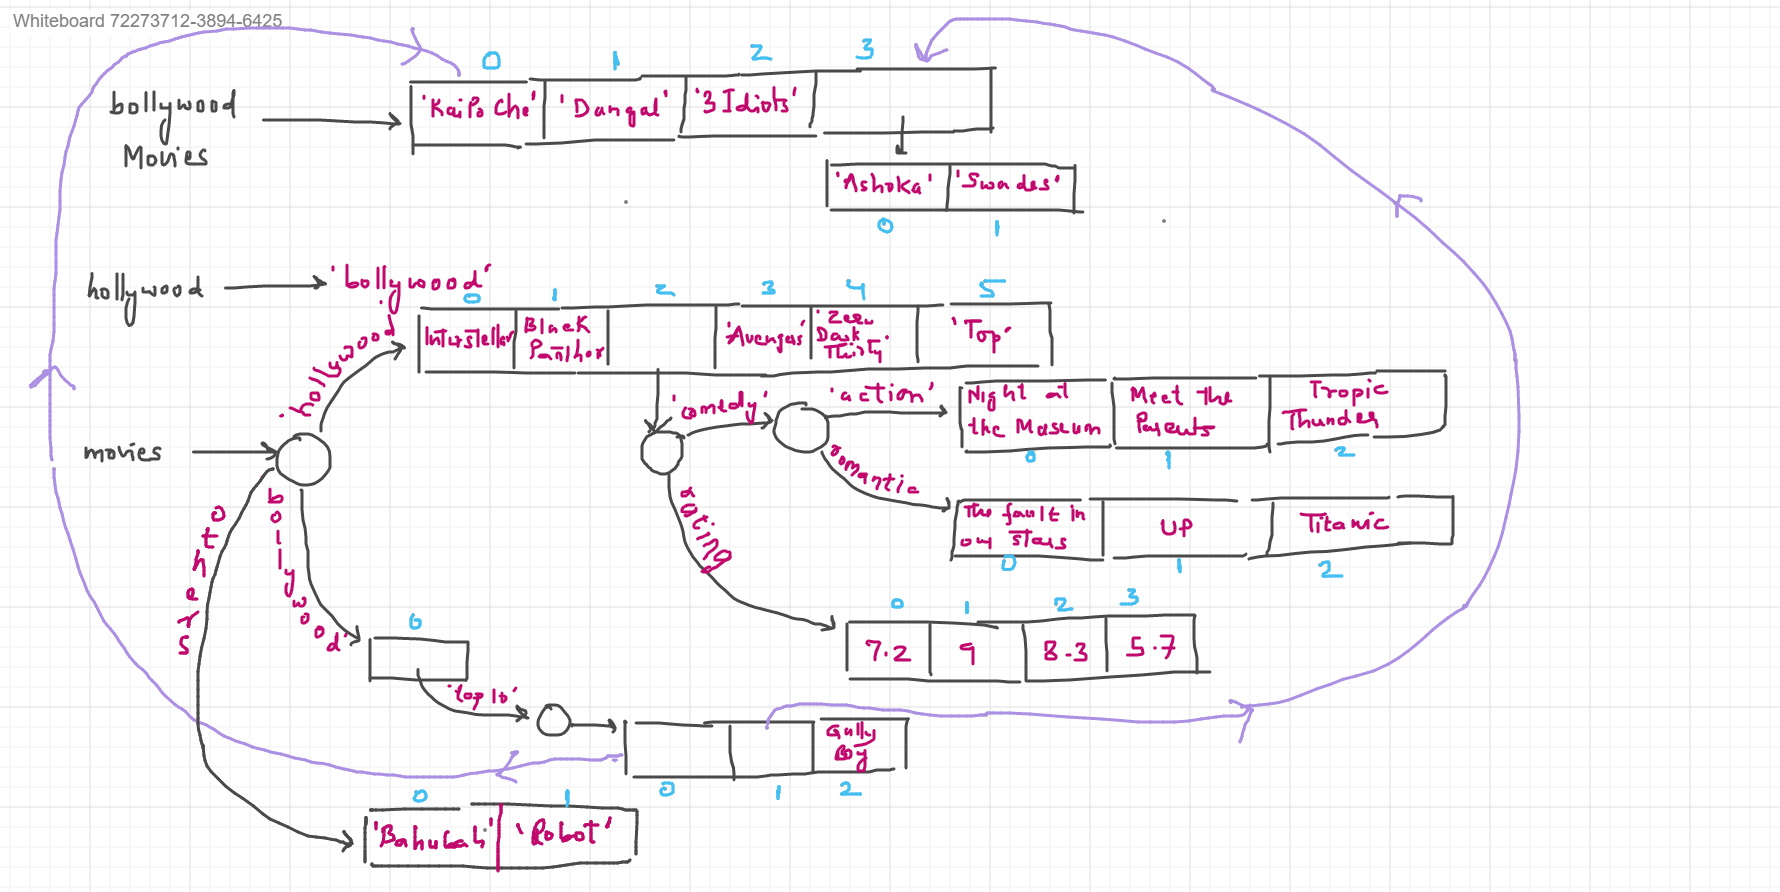 Whiteboard 72273712-3894-6425
0 1 2 3
bollywood
Movies
'KaiPo Che' 'Dangal' '3 Idiots'
'Ashoka' 'Swades'
0 1
hollywood
'bollywood'
0 1 2 3 4 5
Interstellar
Black
Panther
'Avenges'
'Zero
Dark
Thirty'
'Top'
'hollywood'
movies
'comedy'
'action'
Night at
the Museum
Meet the
Parents
Tropic
Thunder
0 1 2
romantic
The fault in
our stars
UP
Titanic
0 1 2
rating
0 1 2 3
7.2 9 8.3 5.7
others
bollywood'
0
'top10'
Gully
Boy
0 1 2
0 1
'Bahubali' 'Robot'